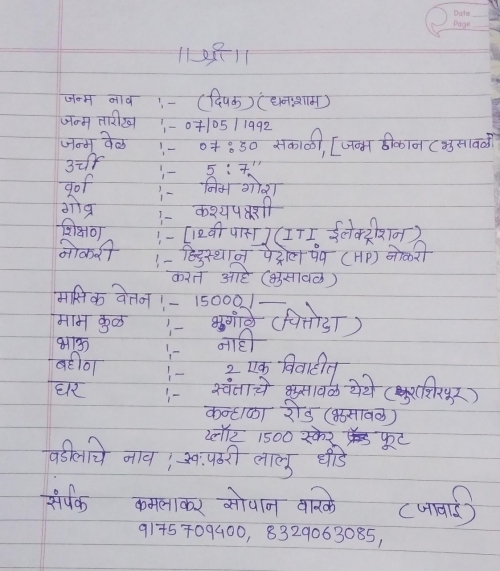 Date
Page
॥ श्री ॥
जन्म नाव :- (दिपक) (धन:शाम)
जन्म तारीख :- 07/05/1992
जन्म वेळ :- 07:30 सकाळी, [जन्म ठीकान (भुसावळ)
उंची 5:7"
वर्ण :- निम गोरा
गोत्र :- कश्यपऋशी
शिक्षण :- [12वी पास] (ITI ईलेक्ट्रीशन)
नोकरी :- हिंदुस्थान पेट्रोल पंप (HP) नोकरी
करत आहे (भुसावळ)
मासिक वेतन :- 15000/-
माम कुळ :- भुगांळे (चित्तोडा)
भाऊ :- नाही
बहीण :- 2 एक विवाहीत
घर :- स्वंताचे भुसावळ येथे
कन्हाळा रोड (भुसावळ)
प्लॉट 1500 स्केर फूट
वडीलाचे नाव :- स्व: पंढरी लालु धांडे
संर्पक कमलाकर सोपान वारके (जावाई)
9175709400, 8329063085,